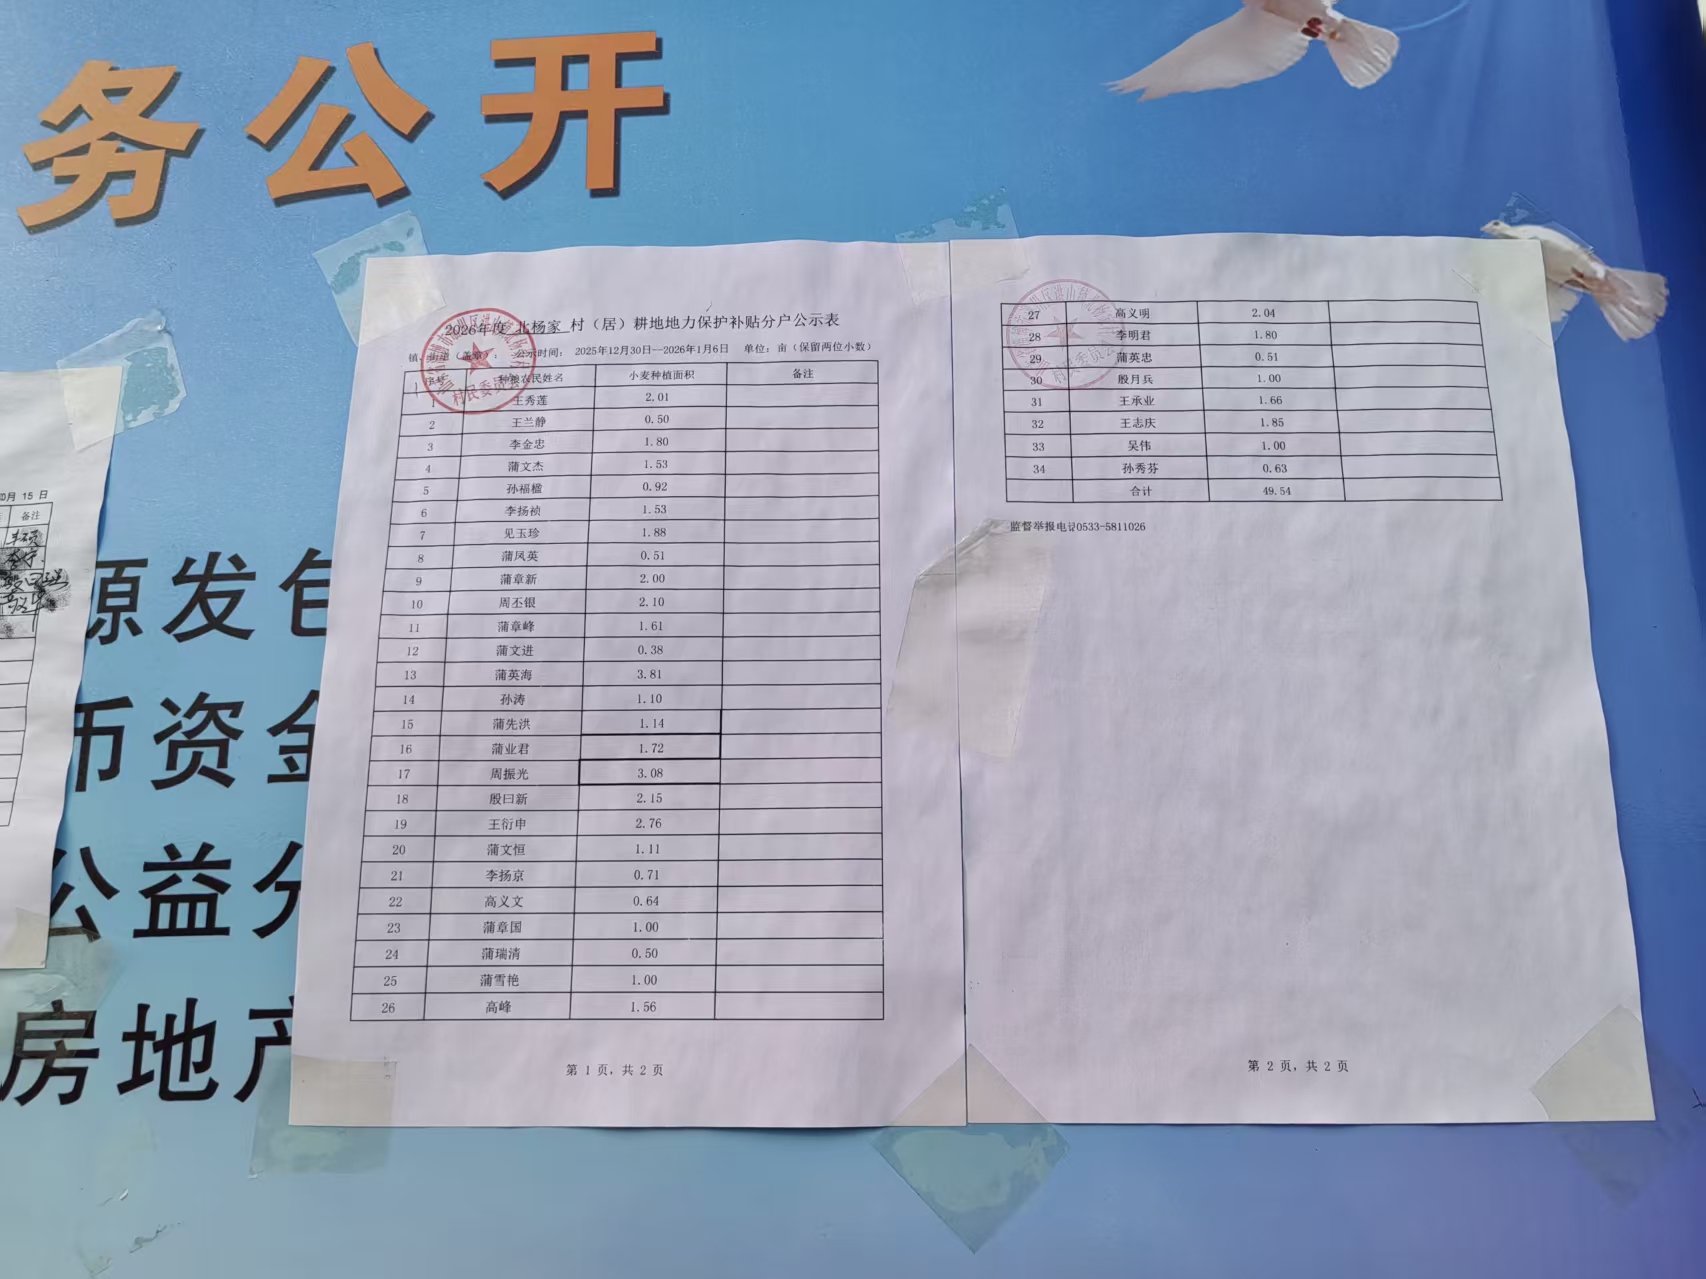 务公开
2026年度 北杨家 村（居）耕地地力保护补贴分户公示表
镇、街道（盖章）： 公示时间： 2025年12月30日--2026年1月6日 单位：亩（保留两位小数）
序号 种粮农民姓名 小麦种植面积 备注
1 王秀莲 2.01
2 王兰静 0.50
3 李金忠 1.80
4 蒲文杰 1.53
5 孙福楹 0.92
6 李扬祯 1.53
7 见玉珍 1.88
8 蒲凤英 0.51
9 蒲章新 2.00
10 周丕银 2.10
11 蒲章峰 1.61
12 蒲文进 0.38
13 蒲英海 3.81
14 孙涛 1.10
15 蒲先洪 1.14
16 蒲业君 1.72
17 周振光 3.08
18 殷曰新 2.15
19 王衍申 2.76
20 蒲文恒 1.11
21 李扬京 0.71
22 高义文 0.64
23 蒲章国 1.00
24 蒲瑞清 0.50
25 蒲雪艳 1.00
26 高峰 1.56
第 1 页，共 2 页
27 高义明 2.04
28 李明君 1.80
29 蒲英忠 0.51
30 殷月兵 1.00
31 王承业 1.66
32 王志庆 1.85
33 吴伟 1.00
34 孙秀芬 0.63
合计 49.54
监督举报电话0533-5811026
第 2 页，共 2 页
村民委员会
村民委员会
月 15 日
备注
源发包
币资金
公益分
房地产